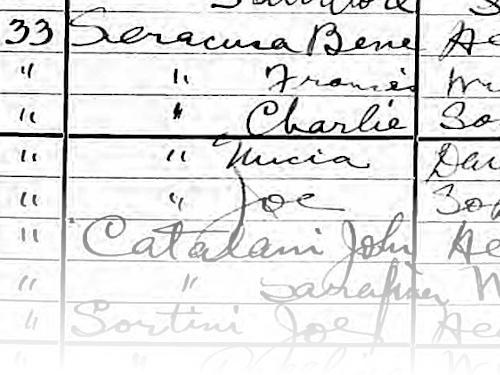 33 Seracusa Bene He
" " Francis
" " Charlie So
" " Mucia Dau
" " Joe So
" Catalani John He
" "
" Sortini Joe He